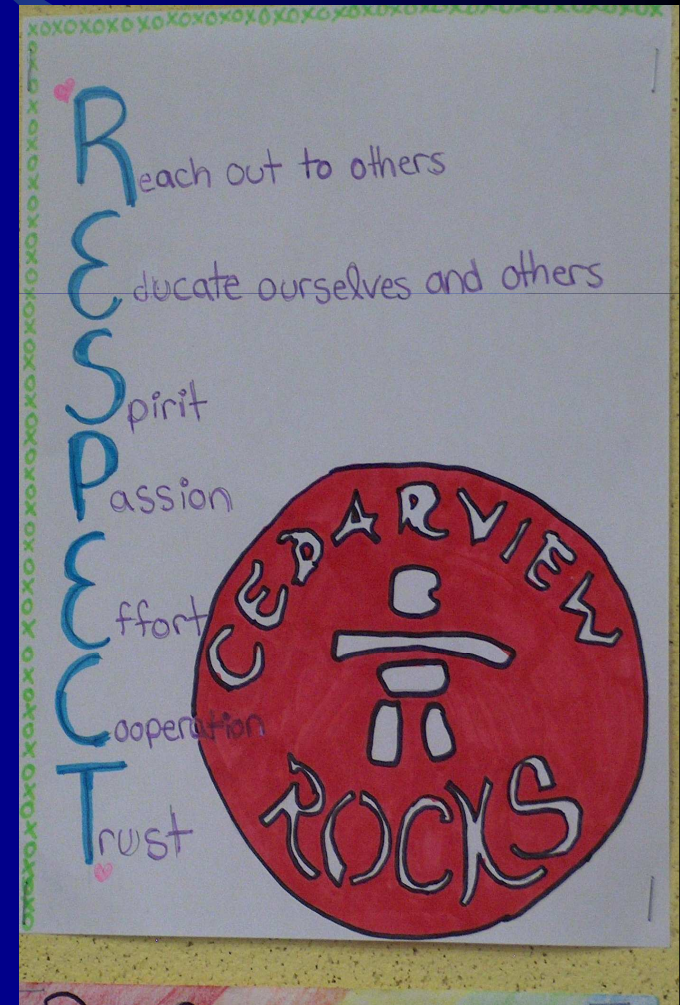 xoxoxoxoxoxoxoxoxoxoxoxoxoxoxoxoxoxoxoxox
Reach out to others
Educate ourselves and others
Spirit
Passion
Effort
Cooperation
Trust
CEDARVIEW
ROCKS